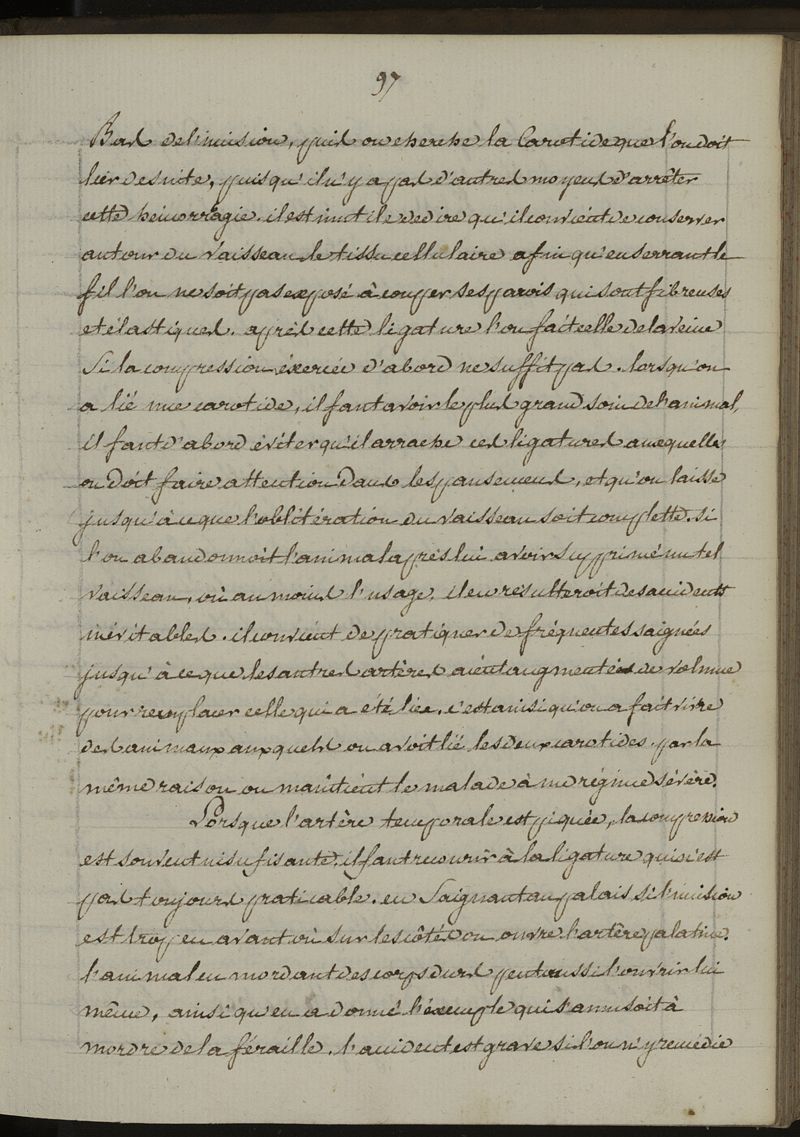 97
Bas de l'incision, puis on cherche la Carotide que l'on doit
lier de suite, puisqu'il n'y a pas d'autres moyens d'arrêter
cette hémorragie. il est inutile de dire qu'il convient de conserver
autour du vaisseau le tissu cellulaire afin qu'en serrant le
fil l'on ne soit pas exposé à couper ses parois qui sont fibreuses
et élastiques. après cette ligature l'on fait celle de la veine
Si la compression éxercée d'abord ne suffit pas. lorsqu'on
a lié une carotide, il faut avoir le plus grand soin de l'animal,
il faut d'abord éviter qu'il arrache ces ligatures auxquelles
on doit faire attention dans les pansemens, et qu'on laisse
jusqu'à ce que l'oblitération du vaisseau soit complette. si
l'on abandonnoit l'animal après lui avoir supprimé un tel
vaisseau, où au moins l'usage, il en résulteroit des accidents
inévitables. il convient de pratiquer de fréquentes saignées
jusqu'à ce que les autres artères aient augmentées de volume
pour remplacer celle qui a été liée. c'est ainsi qu'on a fait vivre
des animaux auxquels on avoit lié les deux carotides. par la
même raison on maintient le malade à un régime sévère.
Lorsque l'artère temporale est piquée, la compression
est souvent insufisante, il faut recourir à la ligature qui n'est
pas toujours praticable. en Saignant au palais si l'incision
est trop en avant où sur les côtés on ouvre l'artère palatine.
l'animal en mordant des corps durs peut aussi l'ouvrir lui
même, ainsi qu'en a donné l'éxemple qui s'amusoit à
mordre de la féraille. l'accident est grave si l'on n'y remédie